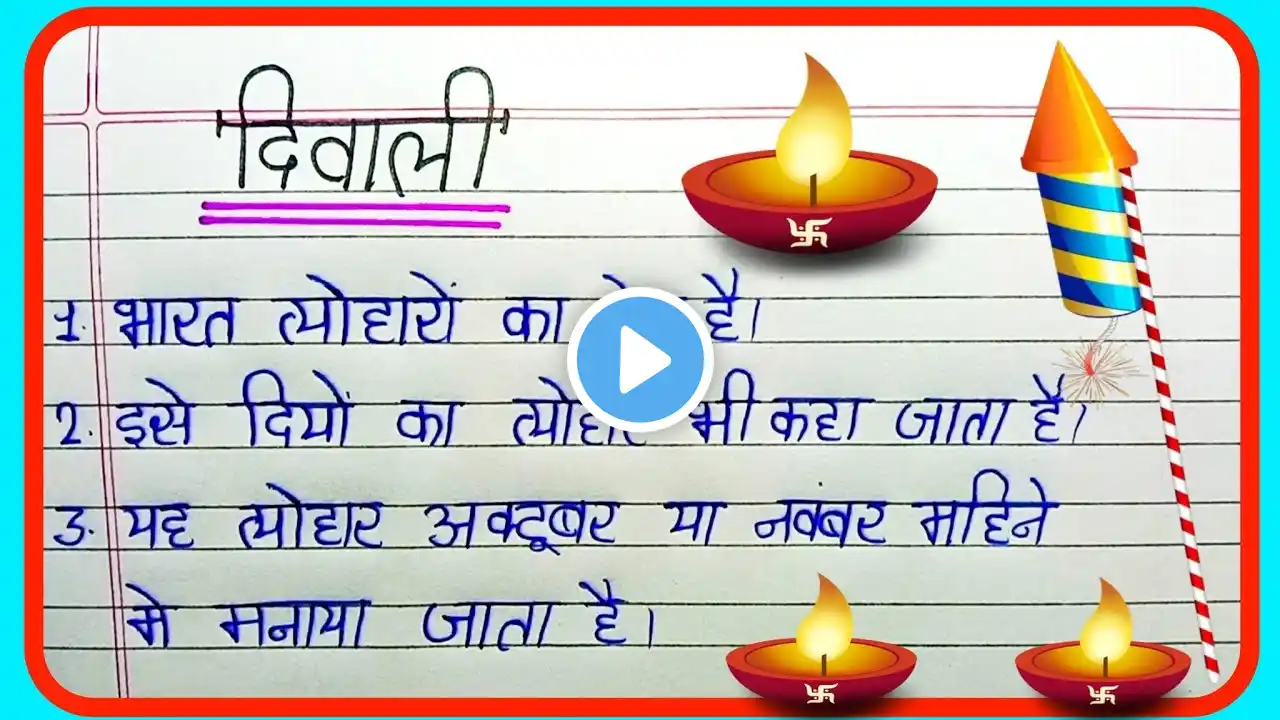 दिवाली
1. भारत त्योहारों का है।
2. इसे दियों का त्योहार भी कहा जाता है।
3. यह त्योहार अक्टूबर या नवंबर महिने
मे मनाया जाता है।